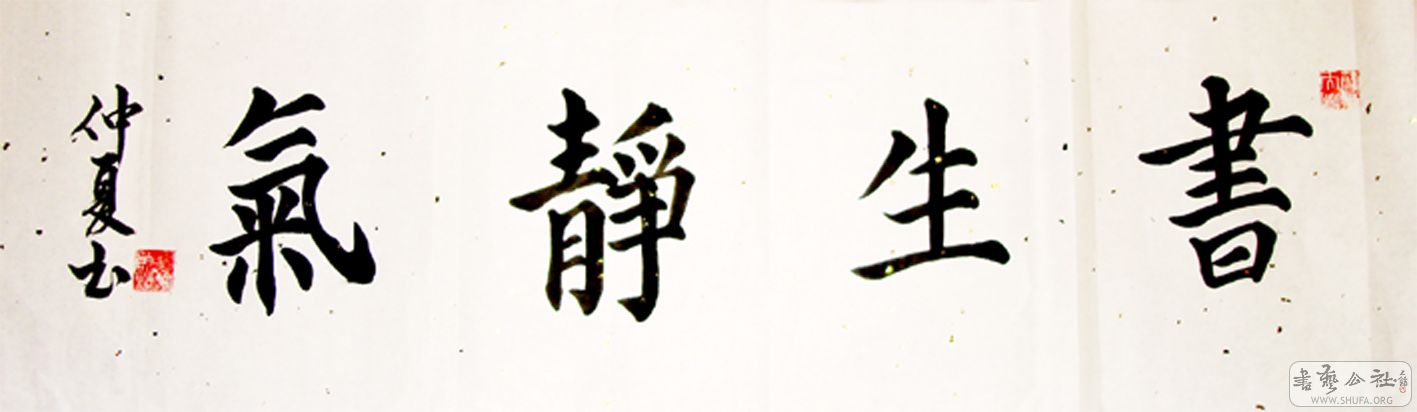 書生靜氣
仲夏書
書藝公社
WWW.SHUFA.ORG